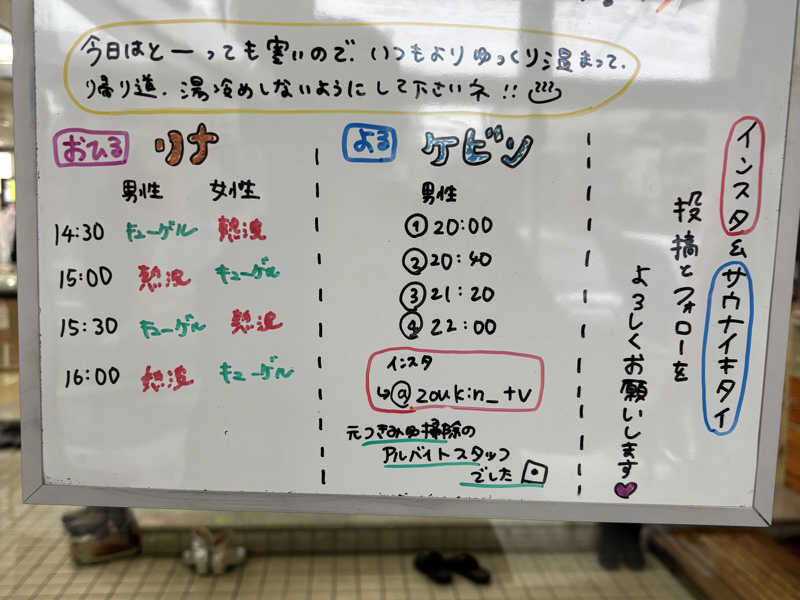 今日はとーっても寒いので、いつもよりゆっくり温まって、
帰り道、湯冷めしないようにして下さいネ!!
おひる リナ
男性 女性
14:30 キューゲル 熱波
15:00 熱波 キューゲル
15:30 キューゲル 熱波
16:00 熱波 キューゲル
よる ケビン
男性
① 20:00
② 20:40
③ 21:20
④ 22:00
インスタ
↳@zoukin_tv
元つきみゆ掃除の
アルバイトスタッフ
でした
インスタ&サウナイキタイ
投稿とフォローを
よろしくお願いします